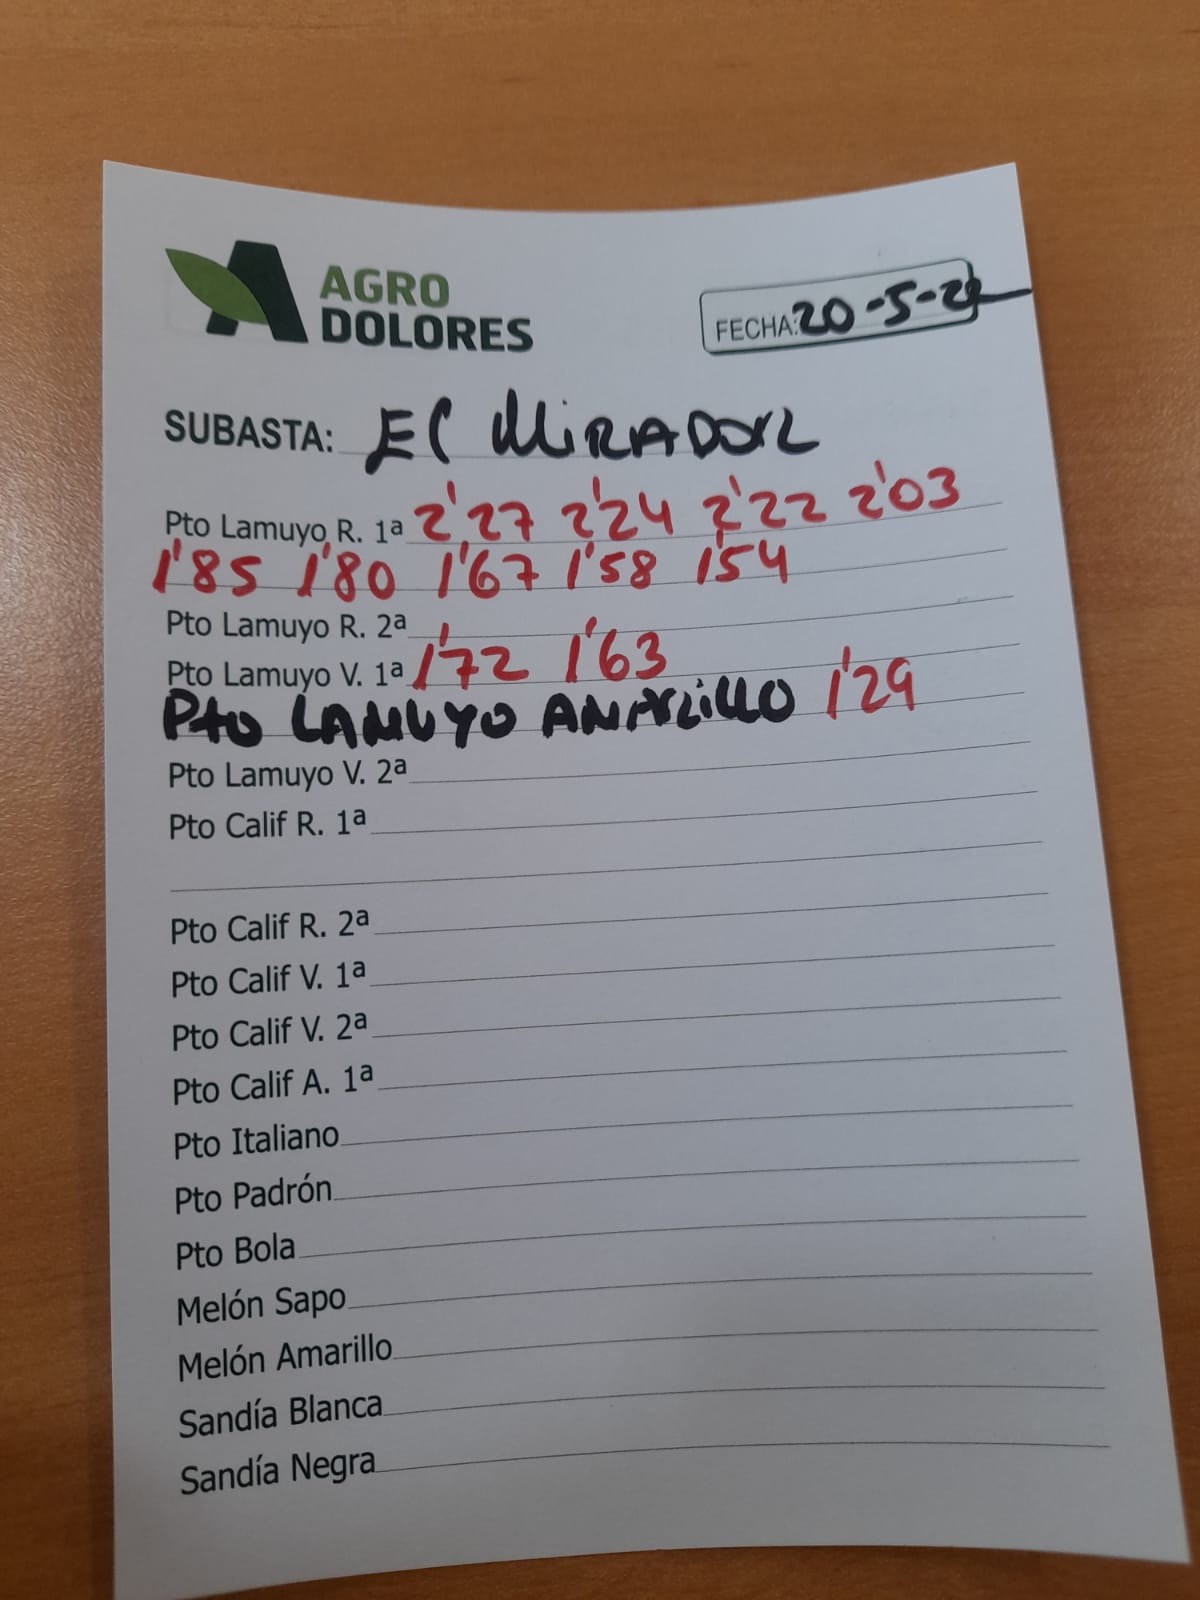 AGRO
DOLORES
FECHA: 20-5-22
SUBASTA: El MiRADOR
Pto Lamuyo R. 1ª 2'27 2'24 2'22 2'03
1'85 1'80 1'67 1'58 1'54
Pto Lamuyo R. 2ª
Pto Lamuyo V. 1ª 1'72 1'63
Pto LAMUYO AMARillO 1'29
Pto Lamuyo V. 2ª
Pto Calif R. 1ª
Pto Calif R. 2ª
Pto Calif V. 1ª
Pto Calif V. 2ª
Pto Calif A. 1ª
Pto Italiano
Pto Padrón
Pto Bola
Melón Sapo
Melón Amarillo
Sandía Blanca
Sandía Negra